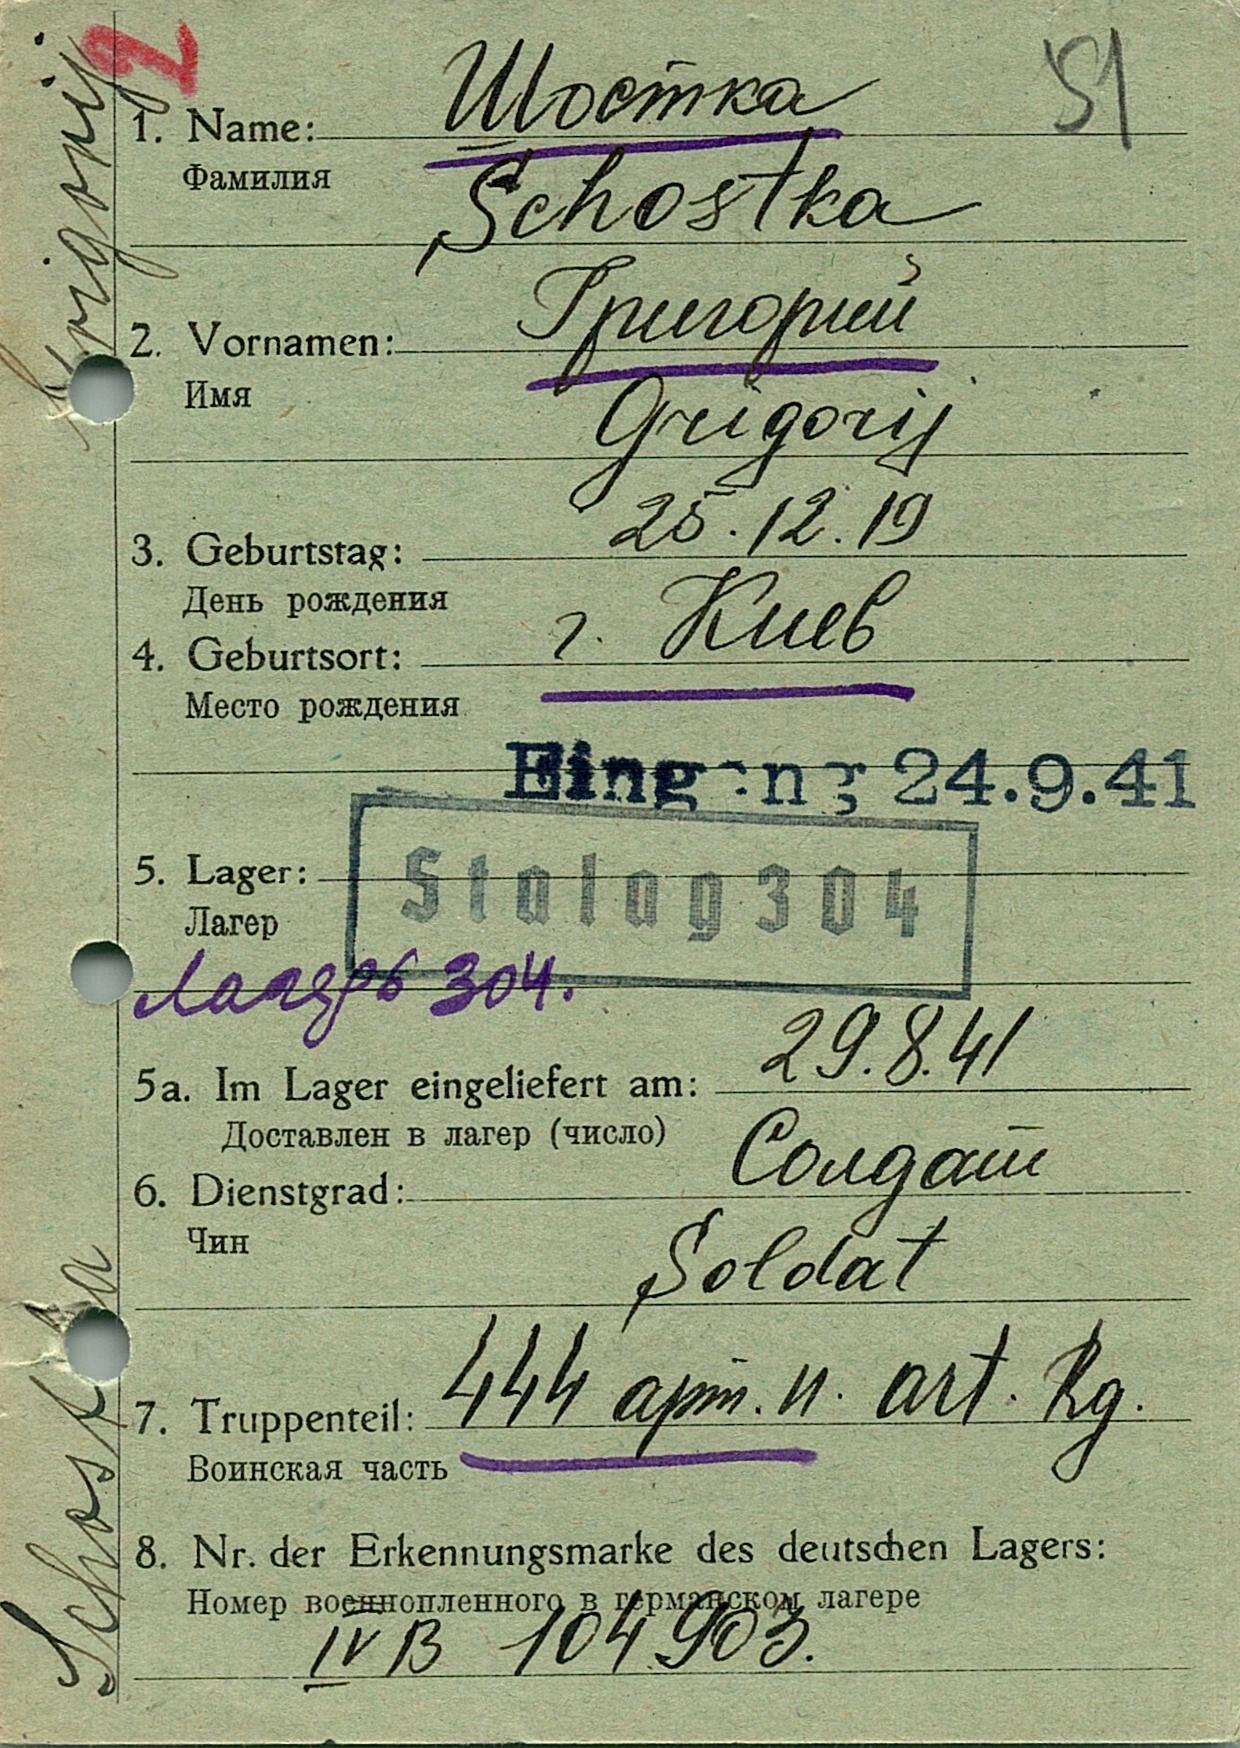 2
51
Шостка
1. Name:
Фамилия
Schostka
Григорий
2. Vornamen:
Имя
Grigorij
25.12.19
3. Geburtstag:
День рождения
г. Киев
4. Geburtsort:
Место рождения
Eingang 24.9.41
Stalag 304
5. Lager:
Лагер
304.
29.8.41
5a. Im Lager eingeliefert am:
Доставлен в лагер (число)
Солдат
6. Dienstgrad:
Чин
Soldat
444 арт. п. art. Rg.
7. Truppenteil:
Воинская часть
8. Nr. der Erkennungsmarke des deutschen Lagers:
Номер военнопленного в германском лагере
IV B 104903.
Schostka Grigorij